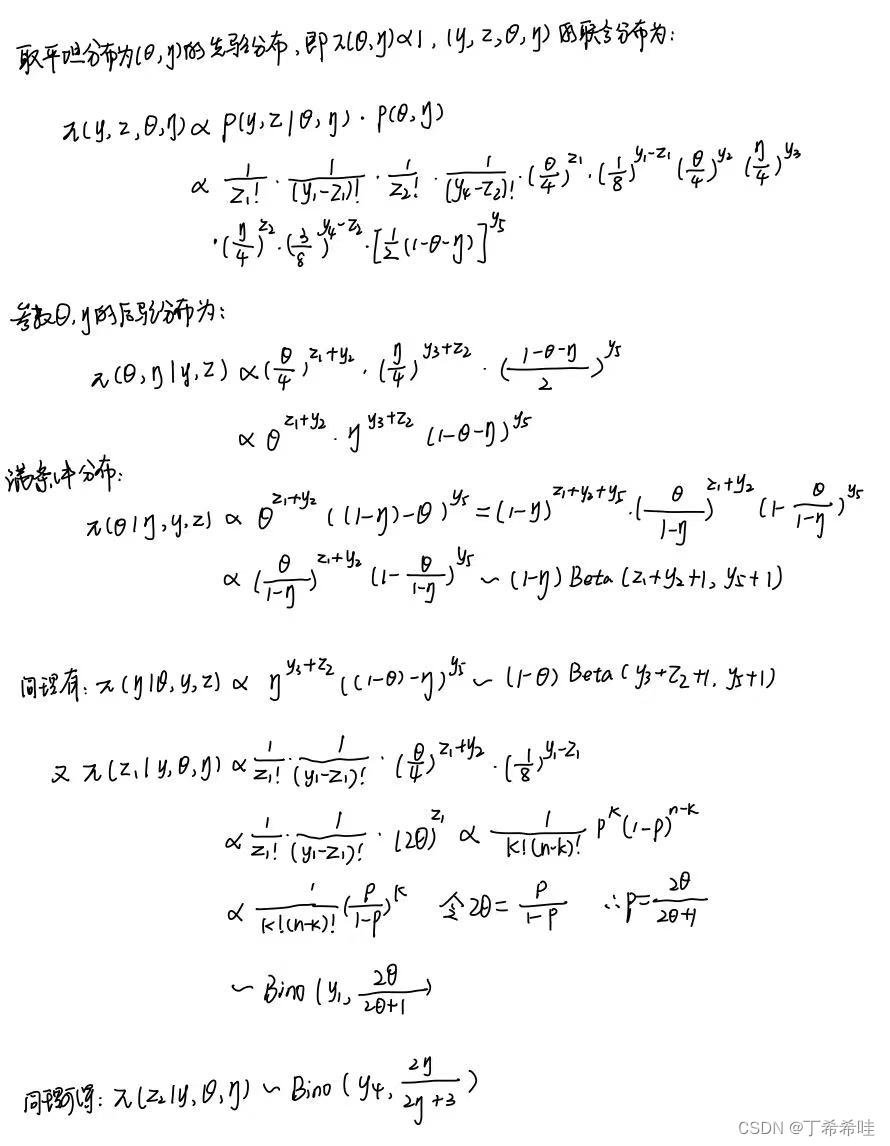 取平坦分布为(θ,η)的先验分布,即π(θ,η)∝1,(y,z,θ,η)的联合分布为:
π(y,z,θ,η)∝ p(y,z|θ,η)·p(θ,η)
∝ 1/z₁! · 1/(y₁-z₁)! · 1/z₂! · 1/(y₄-z₂)! · (θ/4)^z₁ · (1/8)^(y₁-z₁) (θ/4)^y₂ (η/4)^y₃
·(η/4)^z₂ · (3/8)^(y₄-z₂) · [1/2(1-θ-η)]^y₅
参数θ,η的后验分布为:
π(θ,η|y,z) ∝(θ/4)^(z₁+y₂) · (η/4)^(y₃+z₂) · ((1-θ-η)/2)^y₅
∝ θ^(z₁+y₂) · η^(y₃+z₂) (1-θ-η)^y₅
满条件分布:
π(θ|η,y,z) ∝ θ^(z₁+y₂) ((1-η)-θ)^y₅ = (1-η)^(z₁+y₂+y₅) · (θ/(1-η))^(z₁+y₂) (1-θ/(1-η))^y₅
∝ (θ/(1-η))^(z₁+y₂) (1-θ/(1-η))^y₅ ~ (1-η) Beta(z₁+y₂+1, y₅+1)
同理有: π(η|θ,y,z) ∝ η^(y₃+z₂) ((1-θ)-η)^y₅ ~ (1-θ) Beta(y₃+z₂+1, y₅+1)
又 π(z₁|y,θ,η) ∝ 1/z₁! · 1/(y₁-z₁)! · (θ/4)^(z₁+y₂) · (1/8)^(y₁-z₁)
∝ 1/z₁! · 1/(y₁-z₁)! · (2θ)^z₁ ∝ 1/(k!(n-k)!) p^k (1-p)^(n-k)
∝ 1/(k!(n-k)!) (p/(1-p))^k 令2θ= p/(1-p) ∴p= 2θ/(2θ+1)
~ Bino (y₁, 2θ/(2θ+1))
同理可得: π(z₂|y,θ,η) ~ Bino (y₄, 2η/(2η+3))
CSDN @丁希希哇